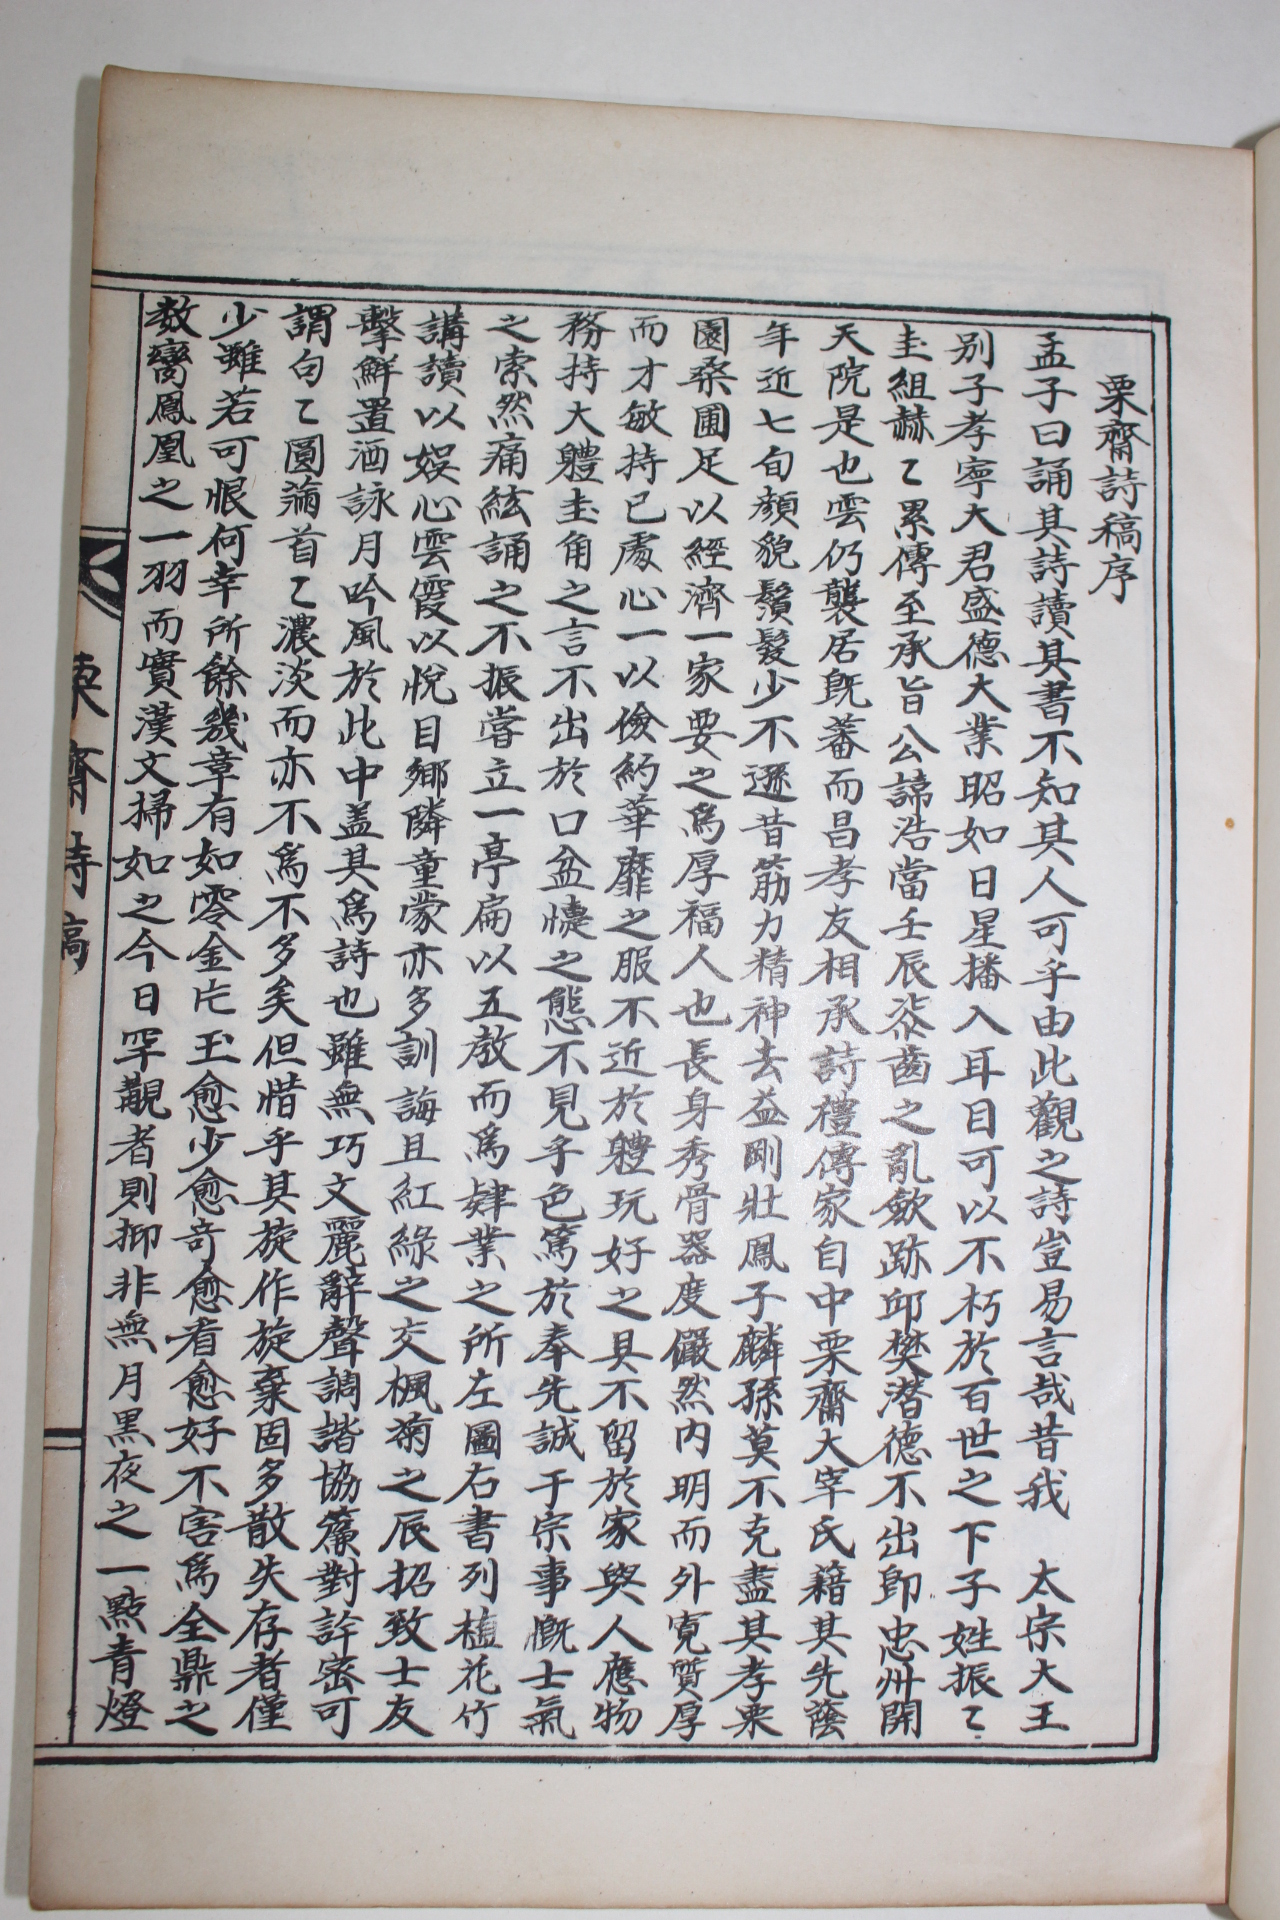 栗齋詩稿序
孟子曰誦其詩讀其書不知其人可乎由此觀之詩豈易言哉昔我 太宗大王
别子孝寧大君盛德大業昭如日星播入耳目可以不朽於百世之下子姓振〻
圭組赫〻累傳至承旨公諱浩當壬辰漆齒之亂斂跡邱樊潜德不出即忠州開
天院是也雲仍襲居旣蕃而昌孝友相承詩禮傳家自中栗齋大宰氏藉其先蔭
年近七旬顔貌鬚髮少不遜昔筋力精神去益剛壯鳳子麟孫莫不克盡其孝栗
園桑圃足以經濟一家要之爲厚福人也長身秀骨器度儼然内明而外寬質厚
而才敏持已處心一以儉約華靡之服不近於軆玩好之具不留於家與人應物
務持大軆圭角之言不出於口忿懥之態不見乎色篤於奉先誠于宗事慨士氣
之索然痛絃誦之不振嘗立一亭扁以五敎而爲肄業之所左圖右書列植花竹
講讀以娛心雲霞以悅目鄉隣童蒙亦多訓誨且紅綠之交楓菊之辰招致士友
擊鮮置酒詠月吟風於此中盖其爲詩也雖無巧文麗辭聲調諧協簾對詳密可
謂句〻圓滿首〻濃淡而亦不爲不多矣但惜乎其旋作旋棄固多散失存者僅
少雖若可恨何幸所餘幾章有如零金片玉愈少愈奇愈看愈好不害爲全鼎之
数臠鳳凰之一羽而實漢文掃如之今日罕覯者則抑非無月黒夜之一點青燈
齋詩稿